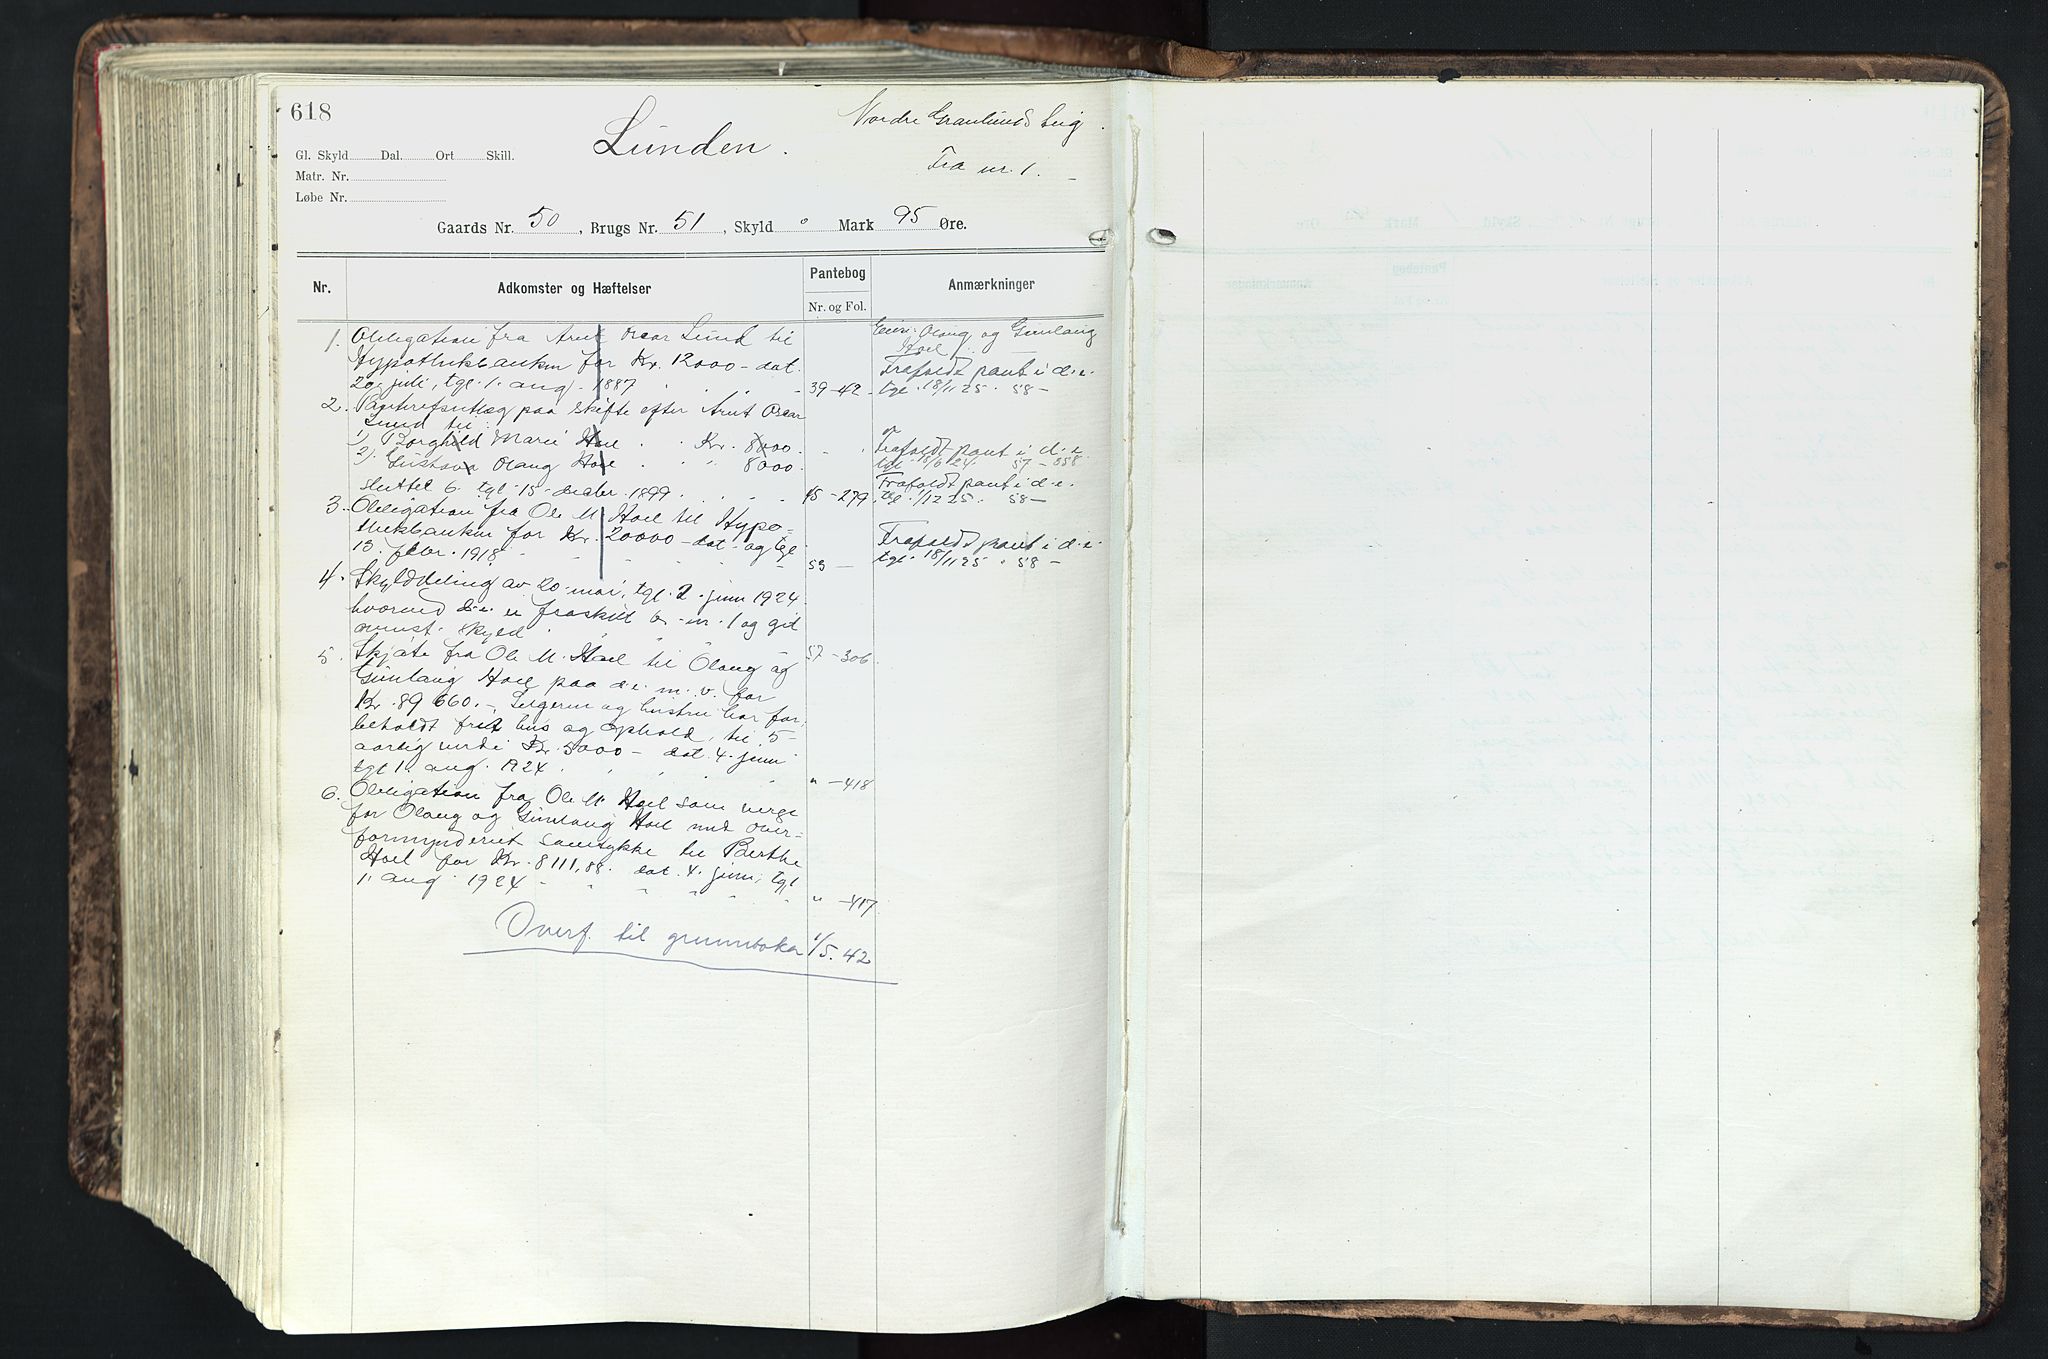 618
Lunden.
Nordre Granlunds eig.
Fra nr. 1. –
Gl. Skyld Dal. Ort Skill.
Matr. Nr.
Løbe Nr.
Gaards Nr. 50, Brugs Nr. 51, Skyld 0 Mark 95 Øre.
Nr. Adkomster og Hæftelser Pantebog Nr. og Fol. Anmærkninger
1. Obligation fra Arnt Oscar Lund til
Hypothekbanken for Kr. 12000 – dat.
20 juli, tgl. 1. aug. 1887 39-42.
Eiere: Olaug og Gunlaug
Hoel
Frafaldt pant i d.e.
tgl. 18/11 25. 58 –
2. Panteretsutlæg paa skifte efter Arnt Oscar
Lund til:
1) Borghild Marie Hoel Kr. 8000.
2) Gustava Olaug Hoel " 8000.
sluttet 6. tgl. 15. decbr. 1899 45-279.
Frafaldt pant i d.e.
tgl. 18/6 24. 57-358
Frafaldt pant i d.e.
tgl. 1/12 25. 58 –
3. Obligation fra Ole M. Hoel til Hypo-
thekbanken for Kr. 20000 – dat. og tgl.
13. febr. 1918 53 –
Frafaldt pant i d.e.
tgl. 18/11 25. 58 –
4. Skylddeling av 20. mai, tgl. 2. juni 1924
hvorved d.e. er fraskilt br. nr. 1 og git
ovenst. skyld 57-306.
5. Skjøte fra Ole M. Hoel til Olaug og
Gunlaug Hoel paa d.e. m. v. for
Kr. 89 660. –. Selgeren og hustru har for-
beholdt frit hus og ophold, til 5-
aarlig verdi Kr. 5000 – dat. 4. juni
tgl. 1. aug. 1924 " -418
6. Obligation fra Ole M. Hoel som verge
for Olaug og Gunlaug Hoel med over-
formynderiets samtykke til Berthe
Hoel for Kr. 8111,88. dat. 4. juni, tgl.
1. aug. 1924 " -417.
Overf. til grunnboka 1/5. 42